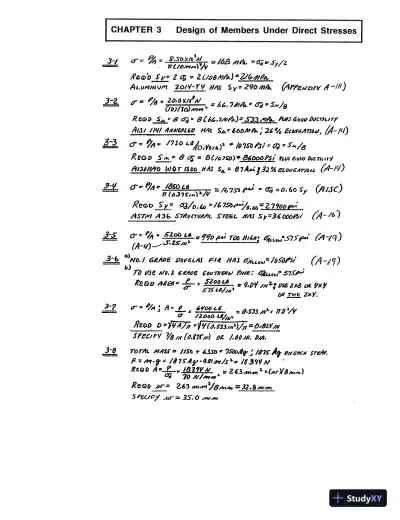 CHAPTER 3 Design of Members Under Direct Stresses
3-1 σ = P/A = 8.50x10³N / π(10mm)²/4 = 108 MPa = σd = Sy/2
REQ'D Sy = 2 σd = 2(108 MPa) = 216 MPa
ALUMINUM 2014-T4 HAS Sy = 290 MPa (APPENDIX A-18)
3-2 σ = P/A = 20.0x10³N / (10)(30)mm² = 66.7 MPa = σd = Su/8
REQD Su = 8 σd = 8(66.7 MPa) = 533 MPa PLUS GOOD DUCTILITY
AISI 1141 ANNEALED HAS Su = 600 MPa; 26% ELONGATION. (A-14)
3-3 σ = P/A = 1720 LB / (0.40 in)² = 10750 PSI = σd = Su/8
REQD Su = 8 σd = 8(10750) = 86000 PSI PLUS GOOD DUCTILITY
WQT 1300 HAS Su = 87 ksi; 32% ELONGATION (A-14)
3-4 σ = P/A = 1850 LB / π(0.375in)²/4 = 16750 psi = σd = 0.60 Sy (AISC)
REQD Sy = σd/0.60 = 16750 psi/0.60 = 27900 psi
ASTM A36 STRUCTURAL STEEL HAS Sy = 36000 PSI (A-16)
3-5 σ = P/A = 5200 LB / 5.25 in² = 990 psi TOO HIGH; σALLOW = 575 psi (A-19)
(A-4)
3-6 a) NO.1 GRADE DOUGLAS FIR HAS σALLOW = 1050 PSI (A-19)
b) TO USE NO.2 GRADE SOUTHERN PINE: σALLOW = 575 psi
REQD AREA = P/σ = 5200 LB / 575 LB/in² = 9.04 in²; USE 2x8 OR 4X4
OR TWO 2X4.
3-7 σ = P/A; A = P/σ = 6400 LB / 12000 LB/in² = 0.533 in² = πD²/4
REQD D = √4A/π = √4(0.533 in²)/π = 0.824 in
SPECIFY 7/8 in (0.875 in) OR 1.00 IN. DIA.
3-8 TOTAL MASS = 1150 + 6350 = 7500 kg; 1875 kg ON EACH STRAP.
F = m·g = 1875 kg · 9.81 m/s² = 18394 N
REQD A = P/σd = 18394 N / 70 N/mm² = 263 mm² = (w)(8mm)
REQD w = 263 mm²/8mm = 32.8 mm
SPECIFY w = 35.0 mm
StudyXY